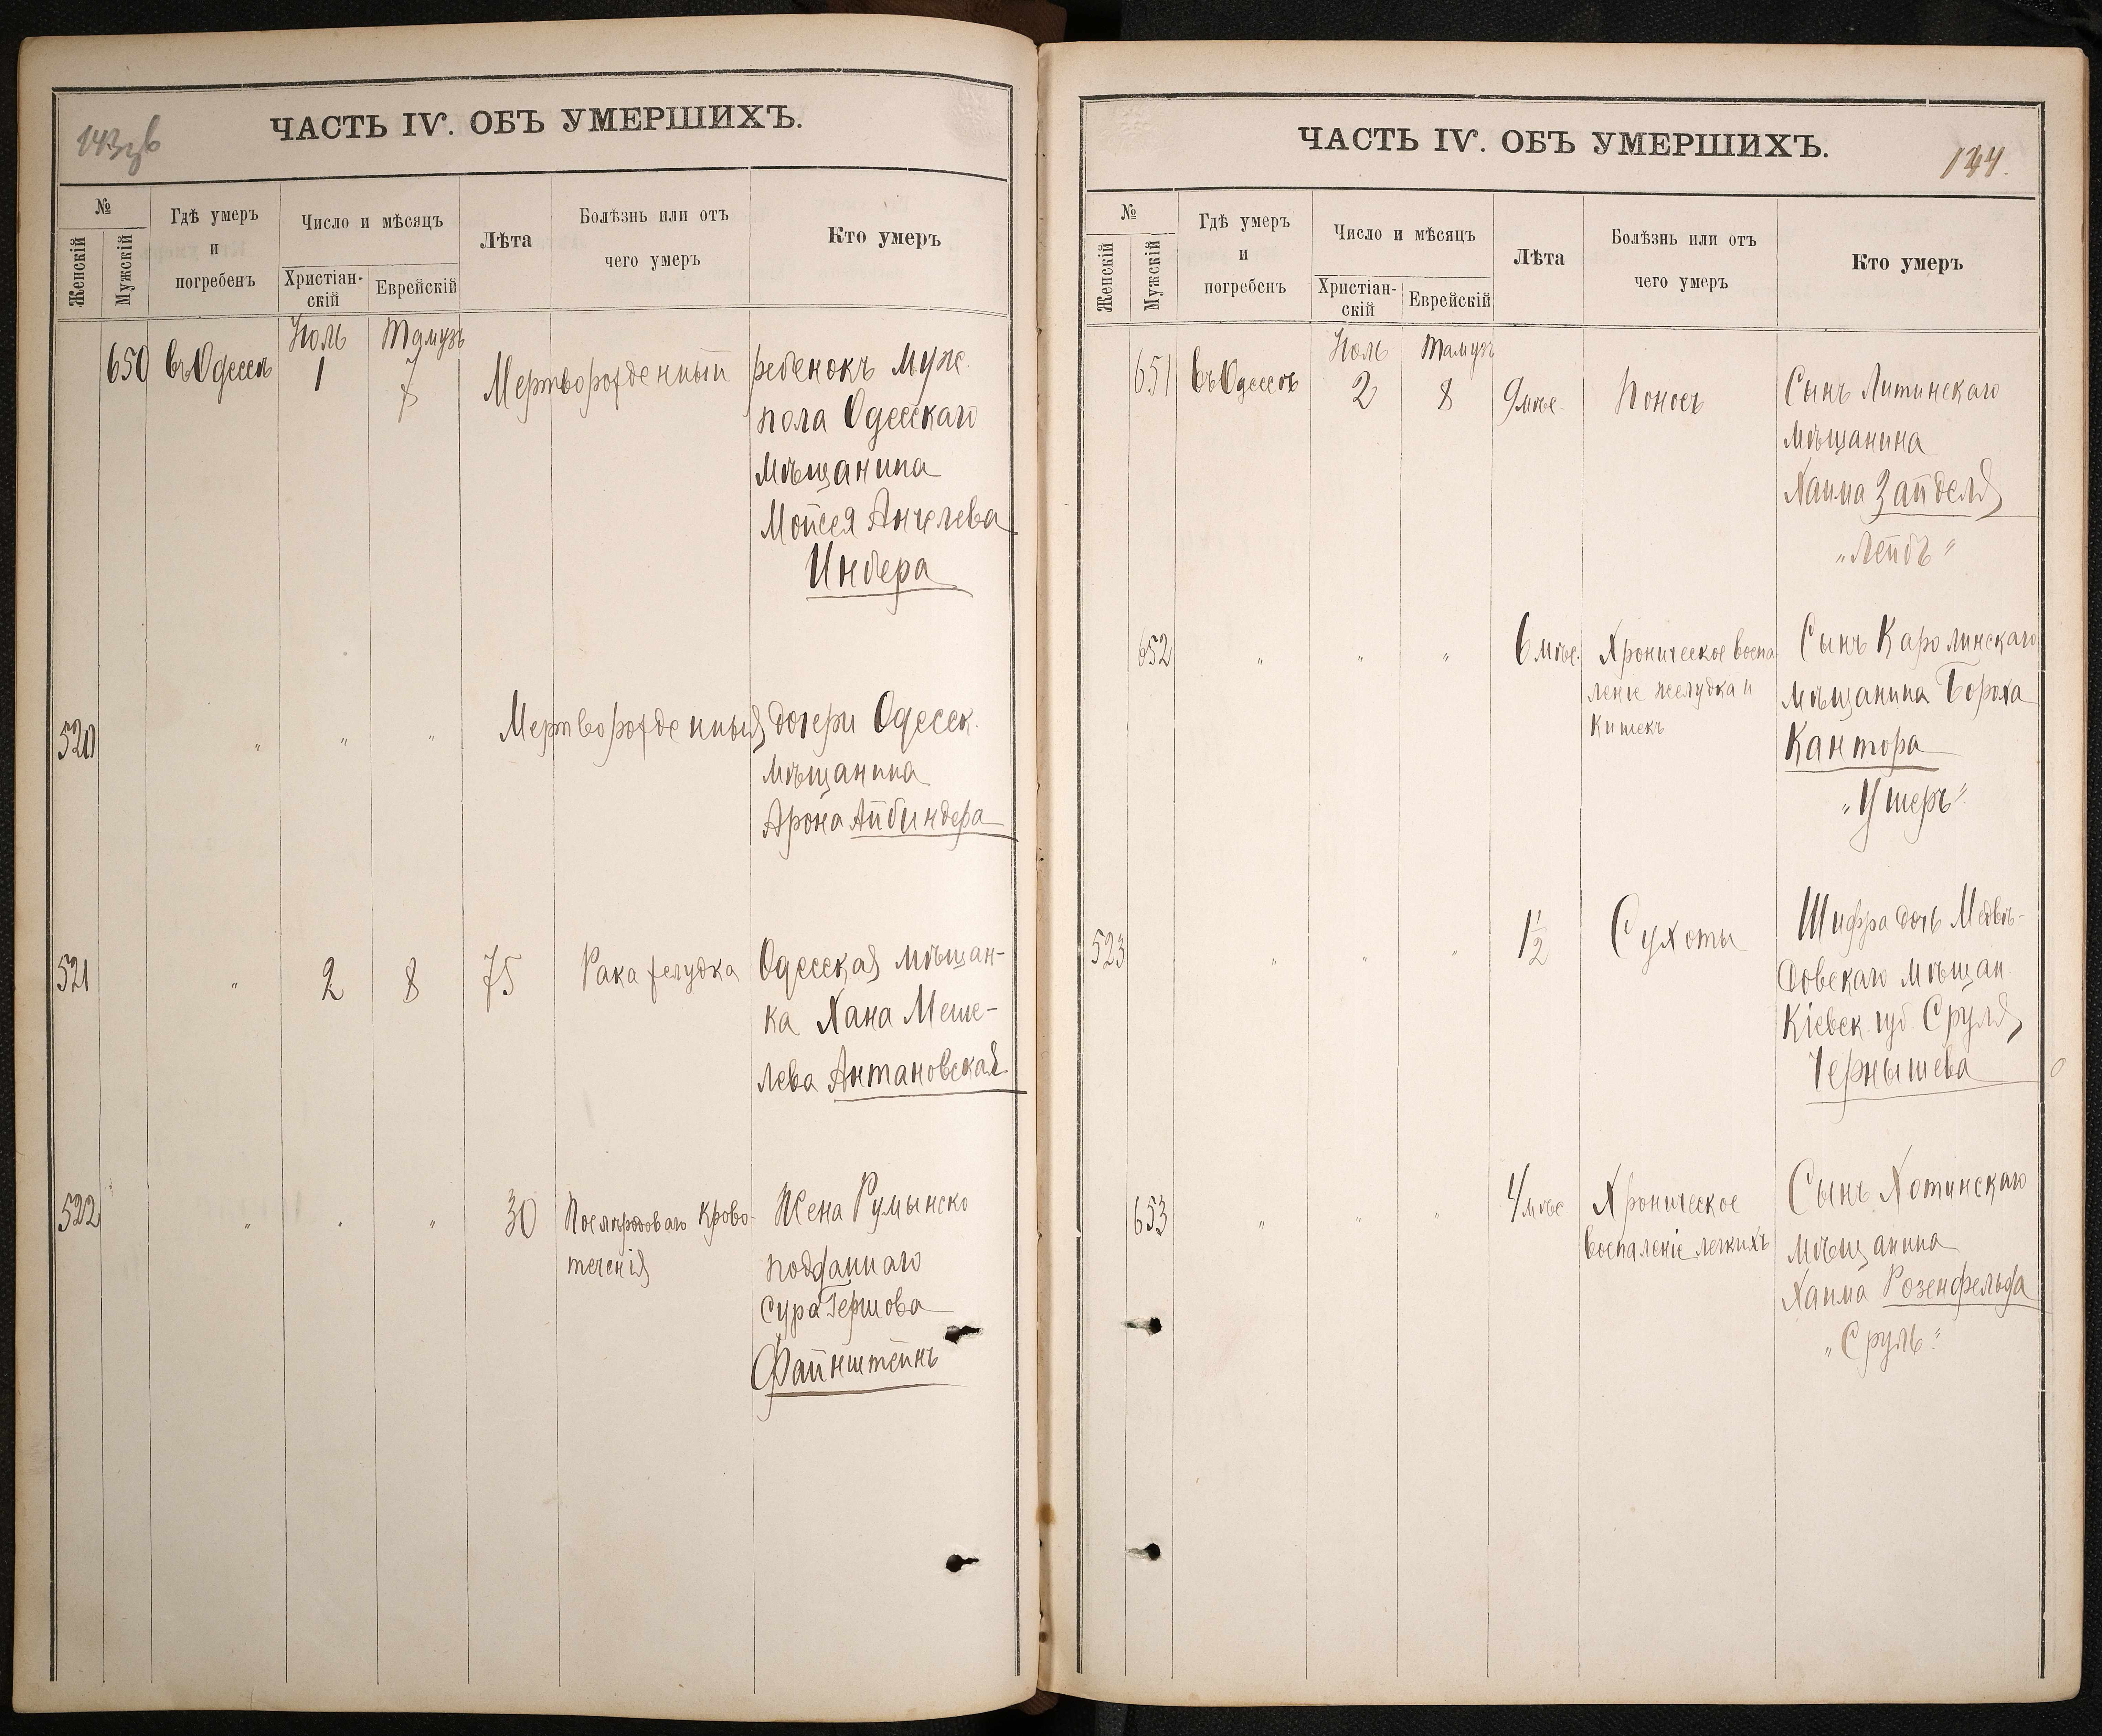 143об
ЧАСТЬ IV. ОБЪ УМЕРШИХЪ.
№
Женскій
Мужскій
Гдѣ умеръ
и
погребенъ
Число и мѣсяцъ
Христіан-
скій
Еврейскій
Лѣта
Болѣзнь или отъ
чего умеръ
Кто умеръ
Іюль Тамузъ
650 въ Одессѣ 1 7 Мертворожденный ребенокъ муж.
пола Одесскаго
мѣщанина
Мойсея Анчелева
Инбера
520 " " " Мертворожденныя дочери Одесск.
мѣщанина
Арона Айбиндера
521 " 2 8 75 Рака желудка Одесская мѣщан-
ка Хана Меше-
лева Антановская
522 " " " 30 Послѣродоваго крово-
теченія
Жена Румынско
подданнаго
Сура Гершова
Файнштейнъ
ЧАСТЬ IV. ОБЪ УМЕРШИХЪ.
144.
№
Женскій
Мужскій
Гдѣ умеръ
и
погребенъ
Число и мѣсяцъ
Христіан-
скій
Еврейскій
Лѣта
Болѣзнь или отъ
чего умеръ
Кто умеръ
Іюль Тамузъ
651 въ Одессѣ 2 8 9 мѣс. Поносъ Сынъ Литинскаго
мѣщанина
Хаима Зайделя
"Лейбъ"
652 " " " 6 мѣс. Хроническое воспа
леніе желудка и
кишекъ
Сынъ Каролинскаго
мѣщанина Бороха
Кантора
"Ушеръ"
523 " " " 1½ Сухоты Шифра дочь Медвѣ-
довскаго мѣщан
Кіевск. губ. Сруля
Чернышева
653 " " " 4 мѣс Хроническое
воспаленіе легкихъ
Сынъ Хотинскаго
мѣщанина
Хаима Розенфельда
"Сруль"